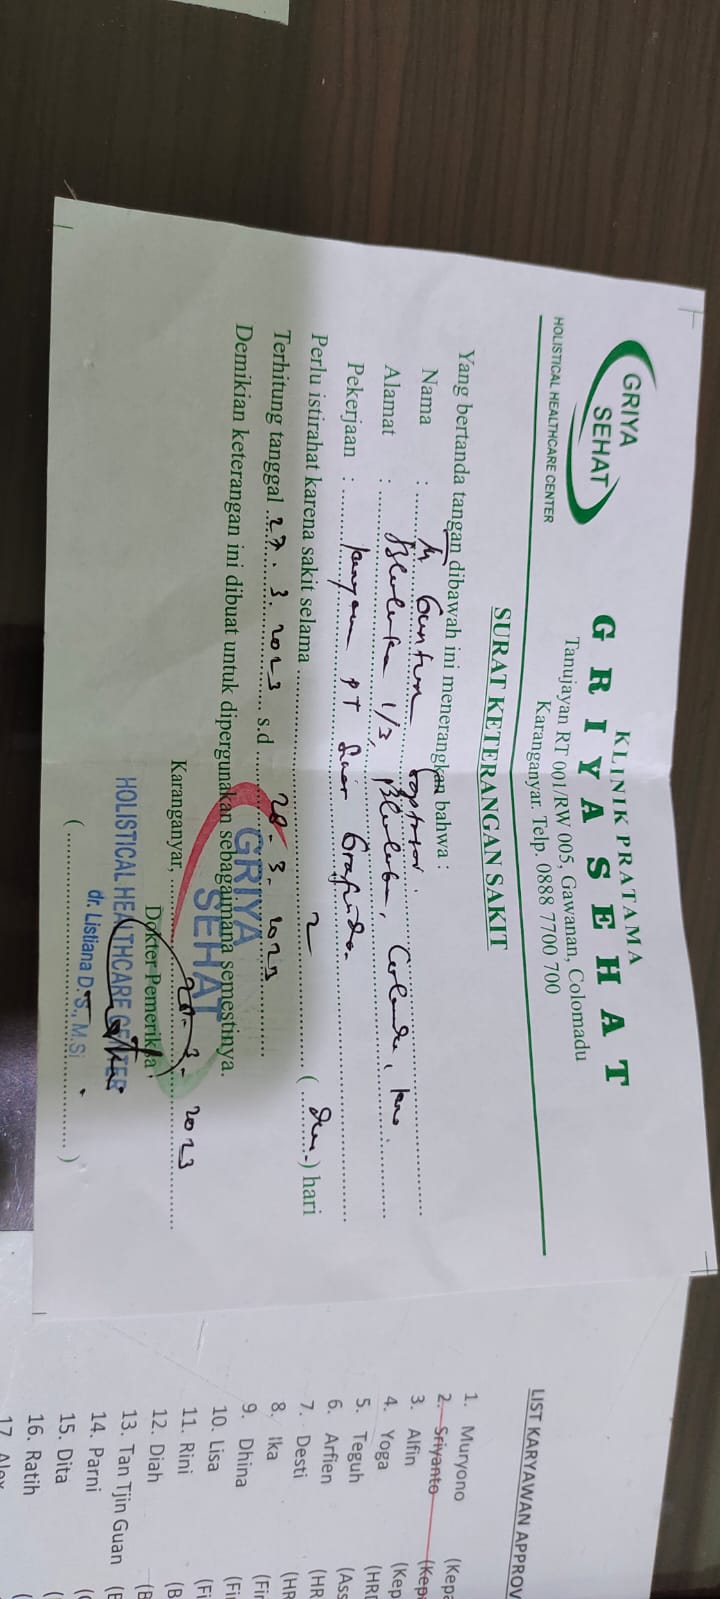 GRIYA
SEHAT
HOLISTICAL HEALTHCARE CENTER
KLINIK PRATAMA
GRIYA SEHAT
Tanujayan RT 001/RW 005, Gawanan, Colomadu
Karanganyar. Telp. 0888 7700 700
SURAT KETERANGAN SAKIT
Yang bertanda tangan dibawah ini menerangkan bahwa :
Nama :
Alamat : 1/3,
Pekerjaan : PT
Perlu istirahat karena sakit selama 2 ( ) hari
Terhitung tanggal 27.3.2023 s.d 28-3-2023
Demikian keterangan ini dibuat untuk dipergunakan sebagaimana semestinya.
Karanganyar, 28-3-2023
Dokter Pemeriksa
GRIYA
SEHAT
HOLISTICAL HEALTHCARE CENTER
dr. Listiana D.S., M.Si
( )
LIST KARYAWAN APPROV
1. Muryono (Kepa
2. Sriyanto (Kepa
3. Alfin (Kep
4. Yoga (HRD
5. Teguh (Ass
6. Arfien (HR
7. Desti (HR
8. Ika (Fin
9. Dhina (Fi
10. Lisa (Fi
11. Rini (B
12. Diah (B
13. Tan Tjin Guan (E
14. Parni (
15. Dita (
16. Ratih (
17. Alex